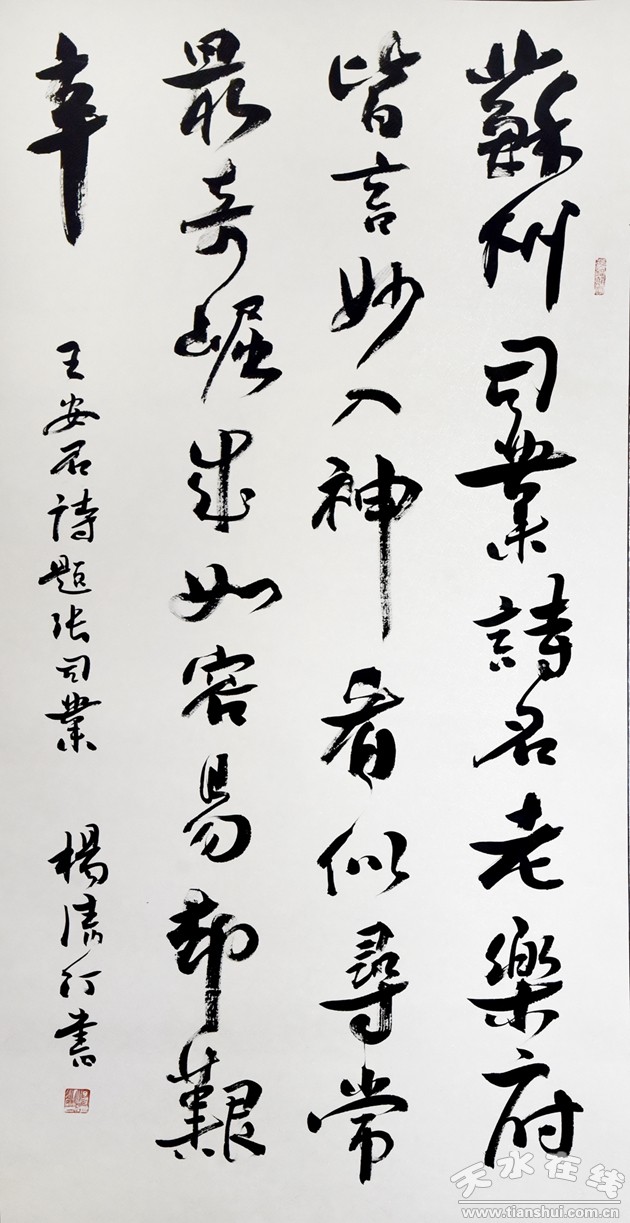 蘇州司業詩名老樂府
皆言妙入神看似尋常
最奇崛成如容易却艱
辛
王安石詩題张司業 楊清汀書
天水在线
www.tianshui.com.cn